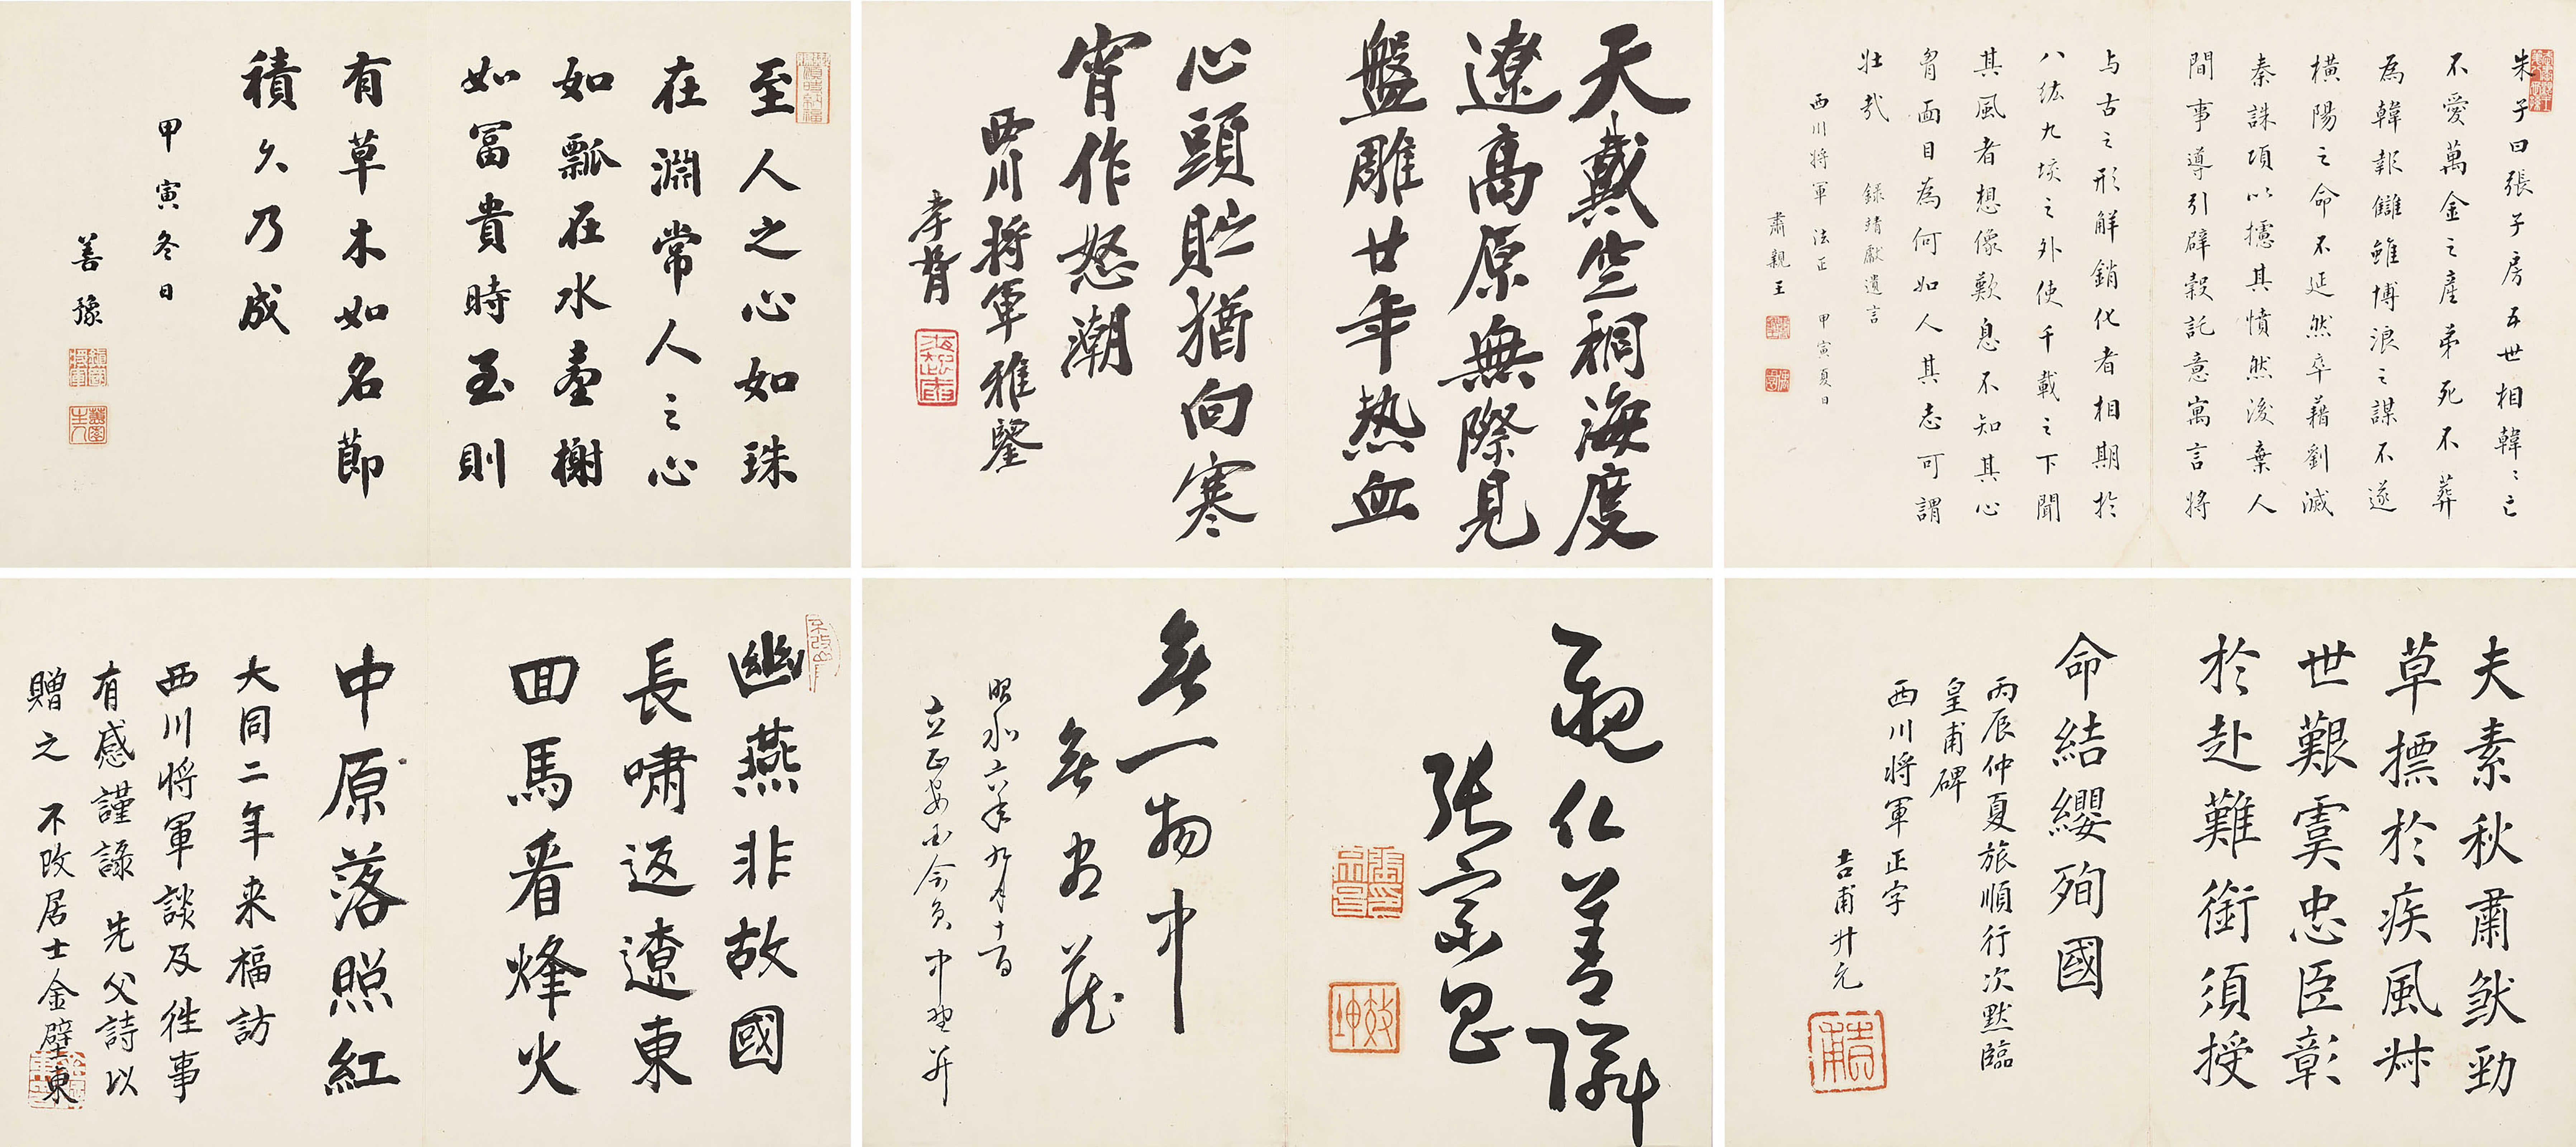 朱子曰張子房五世相韓〻亡
不愛萬金之產弟死不葬
為韓報讎雖博浪之謀不遂
橫陽之命不延然卒藉劉滅
秦誅項以攄其憤然後棄人
間事導引辟穀託意寓言將
与古之形解銷化者相期於
八紘九垓之外使千載之下聞
其風者想像歎息不知其心
胷面目為何如人其志可謂
壯哉 錄靖獻遺言
西川将軍 法正 甲寅夏日
肅親王
天戴空桐海度
遼高原無際見
盤雕廿年熱血
心頭貯猶向寒
宵作怒潮
西川將軍雅鑒
孝胥
至人之心如珠
在淵常人之心
如瓢在水臺榭
如冨貴時至則
有草木如名節
積久乃成
甲寅冬日
善豫
夫素秋肅煞勁
草摽於疾風叔
世艱虞忠臣彰
於赴難銜須授
命結纓殉國
丙辰仲夏旅順行次默臨
皇甫碑
西川将軍正字
吉甫升允
親仁善隣
張宗昌
無一物中
無尽蔵
昭和六年九月十一日
立正安国会員 中野
幽燕非故國
長嘯返遼東
回馬看烽火
中原落照紅
大同二年来福訪
西川将軍談及往事
有感謹錄 先父詩以
贈之 不改居士金壁東